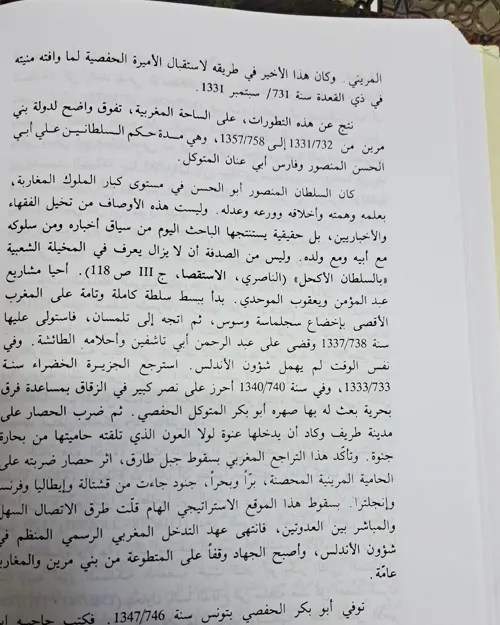 المريني. وكان هذا الأخير في طريقه لاستقبال الأميرة الحفصية لما وافته منيته
في ذي القعدة سنة 731/ سبتمبر 1331.
نتج عن هذه التطورات، على الساحة المغربية، تفوق واضح لدولة بني
مرين من 1331/732 إلى 1357/758، وهي مدة حكم السلطانين علي أبي
الحسن المنصور وفارس أبي عنان المتوكل.
كان السلطان المنصور أبو الحسن في مستوى كبار الملوك المغاربة،
بعلمه وهمته وأخلاقه وورعه وعدله. وليست هذه الأوصاف من تخيل الفقهاء
والأخباريين، بل حقيقية يستنتجها الباحث اليوم من سياق أخباره ومن سلوكه
مع أبيه ومع ولده. وليس من الصدفة أن لا يزال يعرف في المخيلة الشعبية
«بالسلطان الأكحل» (الناصري، الاستقصا، ج III ص 118). أحيا مشاريع
عبد المؤمن ويعقوب الموحدي. بدأ ببسط سلطة كاملة وتامة على المغرب
الأقصى بإخضاع سجلماسة وسوس، ثم اتجه إلى تلمسان، فاستولى عليها
سنة 1337/738 وقضى على عبد الرحمن أبي تاشفين وأحلامه الطائشة. وفي
نفس الوقت لم يهمل شؤون الأندلس. استرجع الجزيرة الخضراء سنة
1333/733، وفي سنة 1340/740 أحرز على نصر كبير في الزقاق بمساعدة فرق
بحرية بعث له بها صهره أبو بكر المتوكل الحفصي. ثم ضرب الحصار على
مدينة طريف وكاد أن يدخلها عنوة لولا العون الذي تلقته حاميتها من بحارة
جنوة. وتأكد هذا التراجع المغربي بسقوط جبل طارق، اثر حصار ضربته على
الحامية المرينية المحصنة، برّاً وبحراً، جنود جاءت من قشتالة وإيطاليا وفرنسا
وإنجلترا. بسقوط هذا الموقع الاستراتيجي الهام قلّت طرق الاتصال السهل
والمباشر بين العدوتين، فانتهى عهد التدخل المغربي الرسمي المنظم في
شؤون الأندلس، وأصبح الجهاد وقفاً على المتطوعة من بني مرين والمغاربة
عامّة.
توفي أبو بكر الحفصي بتونس سنة 1347/746. فكتب حاجبه